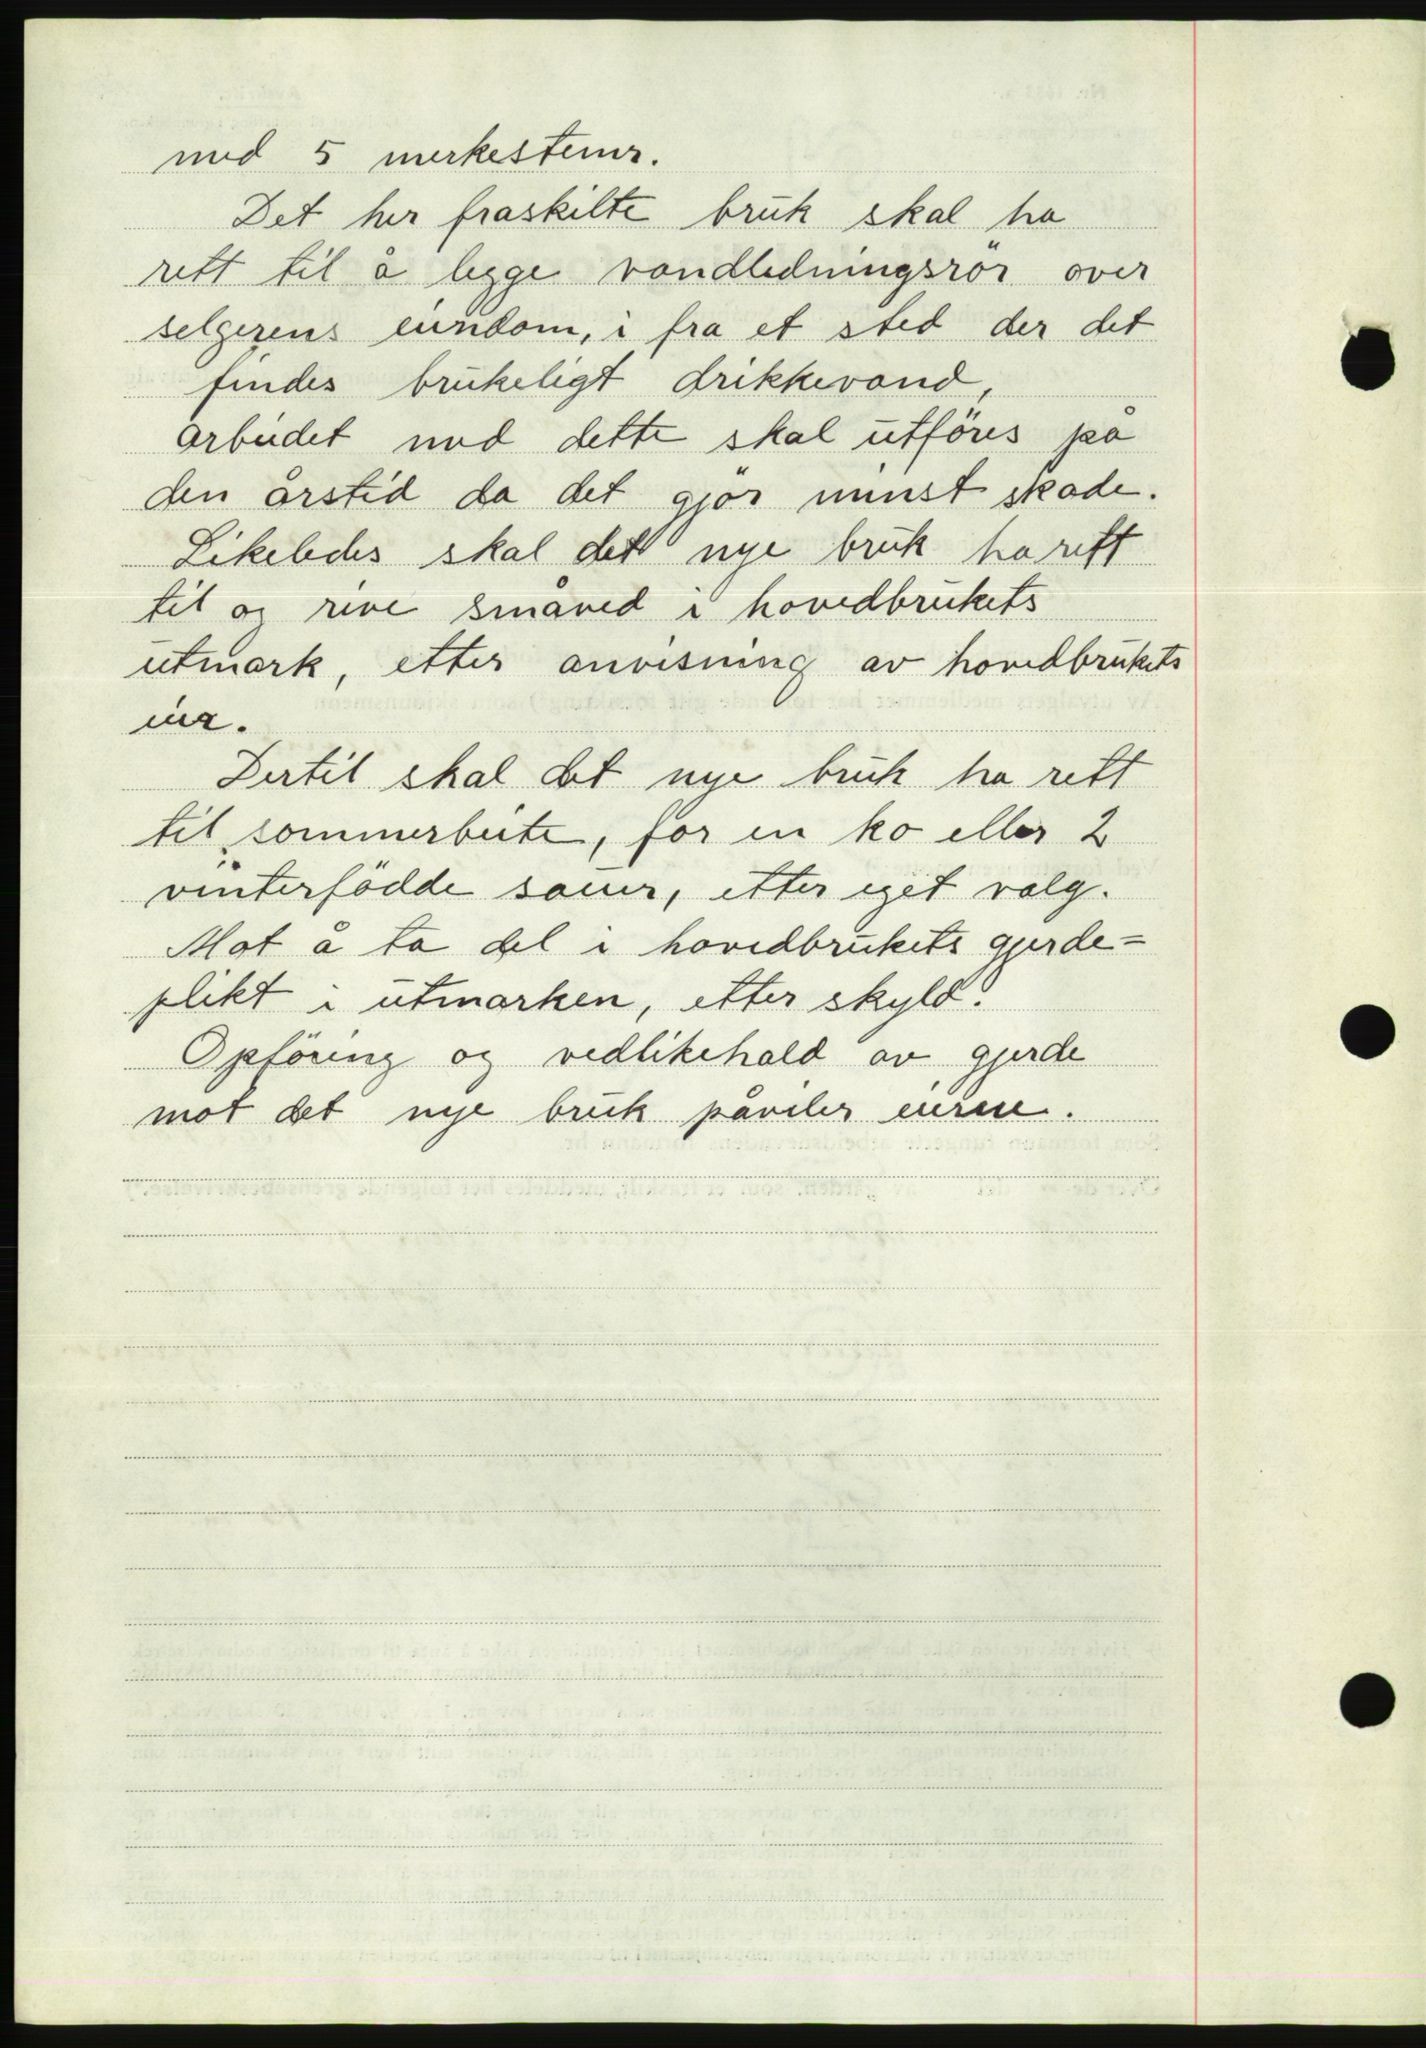 med 5 merkestener.
Det her fraskilte bruk skal ha
rett til å legge vandledningsrör over
selgerens eiendom, i fra et sted der det
findes brukeligt drikkevand,
arbeidet med dette skal utföres på
den årstid da det gjör minst skade.
Likeledes skal det nye bruk ha rett
til og rive småved i hovedbrukets
utmark, etter anvisning av hovedbrukets
eier.
Dertil skal det nye bruk ha rett
til sommerbeite, for en ko eller 2
vinterfödde sauer, etter eget valg.
Mot å ta del i hovedbrukets gjerde=
plikt i utmarken, etter skyld.
Opföring og vedlikehald av gjerde
mot det nye bruk påviler eieren.